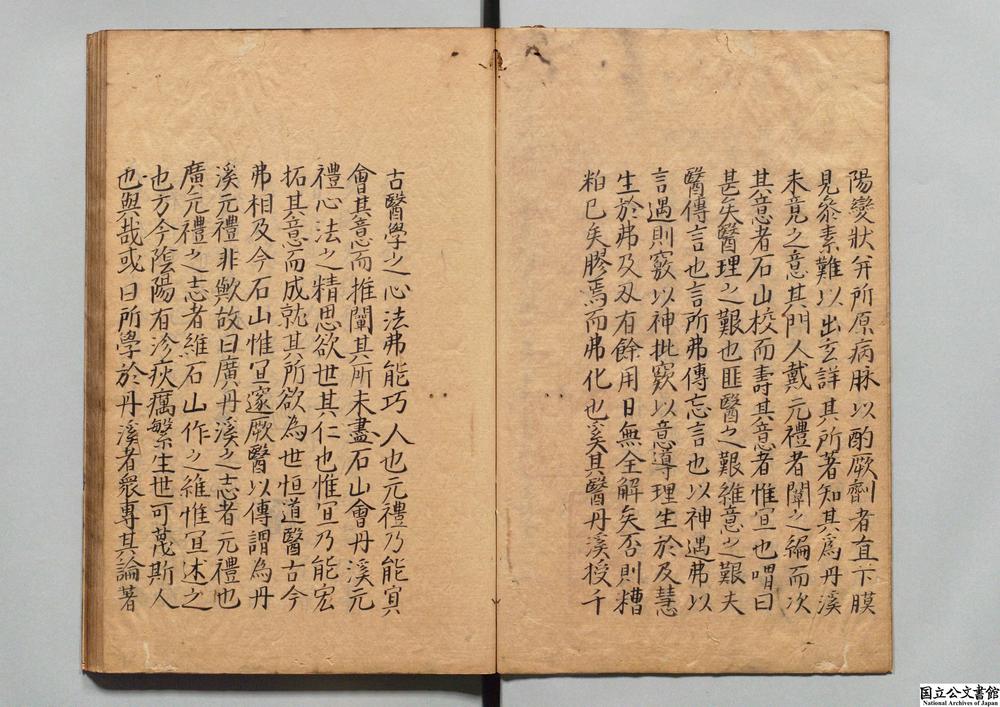 陽變狀并所原病脉以酌厥劑者直下膜
見叅素難以出玄詳其所著知其爲丹溪
未竟之意其門人戴元禮者闡之編而次
其意者石山校而壽其意者惟宜也喟曰
甚矣醫理之艱也匪醫之艱維意之艱夫
醫傳言也言所弗傳忘言也以神遇弗以
言遇則竅以神批窾以意導理生於及慧
生於弗及刄有餘用目無全解矣否則糟
粕已矣膠焉而弗化也奚其醫丹溪授千
古醫學之心法弗能巧人也元禮乃能㝠
會其意而推闡其所未盡石山會丹溪元
禮心法之精思欲世其仁也惟宜乃能宏
拓其意而成就其所欲為世恒道醫古今
弗相及今石山惟宜邃厥醫以傳謂為丹
溪元禮非歟故曰廣丹溪之志者元禮也
廣元禮之志者維石山作之維惟宜述之
也方今陰陽有沴疢癘繁生世可蔑斯人
也與哉或曰所學於丹溪者衆專其論著
国立公文書館
National Archives of Japan